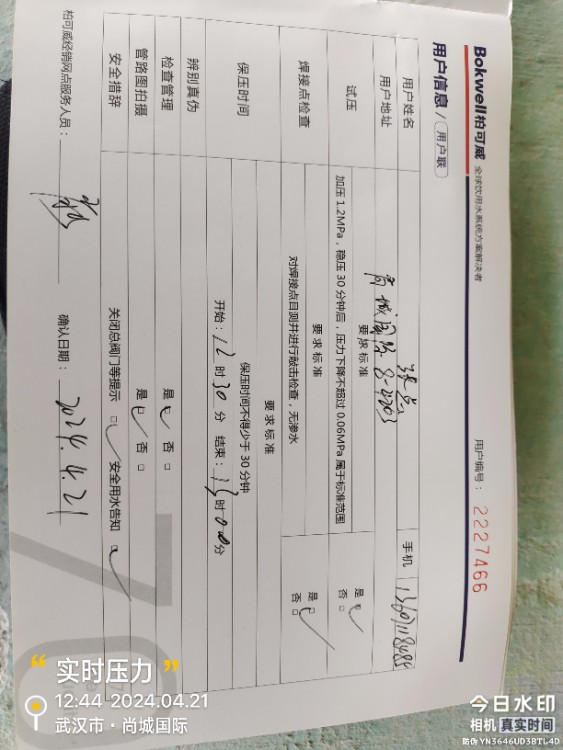 Bokwell柏可威 全球饮用水系统方案解决者
用户编号： 2227466
用户信息 / 用户联
用户姓名 手机
用户地址 尚城国际 8-2203
试压 要求标准
加压 1.2MPa，稳压 30 分钟后，压力下降不超过 0.06MPa 属于标准范围 是☑ 否□
焊接点检查 要求标准
对焊接点目测并进行敲击检查，无渗水 是☑ 否□
保压时间 要求标准
保压时间不得少于 30 分钟
开始：12 时 30 分 结束：13 时 00 分
辨别真伪
检查管理 是☑ 否□
管路图拍摄 是☑ 否□
安全措辞 关闭总阀门等提示 □✓ 安全用水告知 □✓
柏可威经销网点服务人员： 确认日期： 2024.4.21
“ 实时压力 ”
12:44 2024.04.21
武汉市·尚城国际
今日水印
相机 真实时间
防伪 YN3646UD3BTL4D